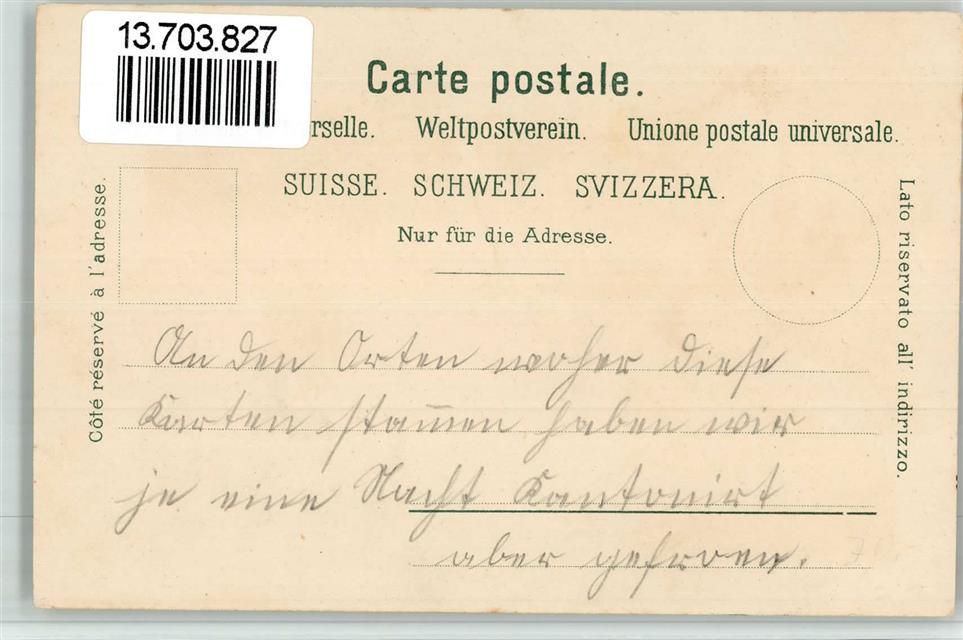 13.703.827
Carte postale.
rselle. Weltpostverein. Unione postale universale.
SUISSE. SCHWEIZ. SVIZZERA.
Nur für die Adresse.
Côté réservé à l'adresse.
Lato riservato all' indirizzo.
An den Orten woher diese
Karten stam̅en haben wir
je eine Nacht Kantonirt
aber gefroren.